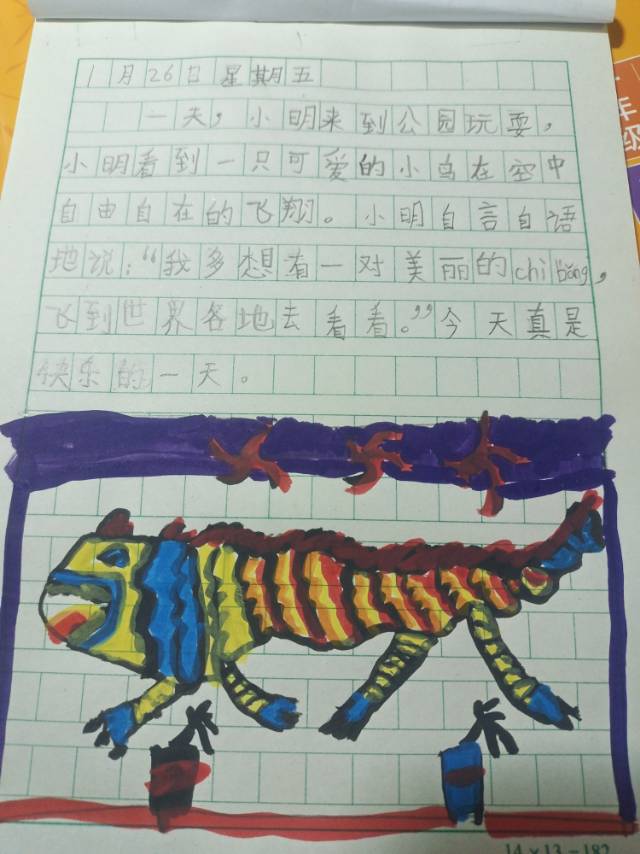 1月26日 星期五
一天,小明来到公园玩耍,
小明看到一只可爱的小鸟在空中
自由自在的飞翔。小明自言自语
地说:“我多想有一对美丽的chì bǎng,
飞到世界各地去看看。”今天真是
快乐的一天。
年
级
14×13=182